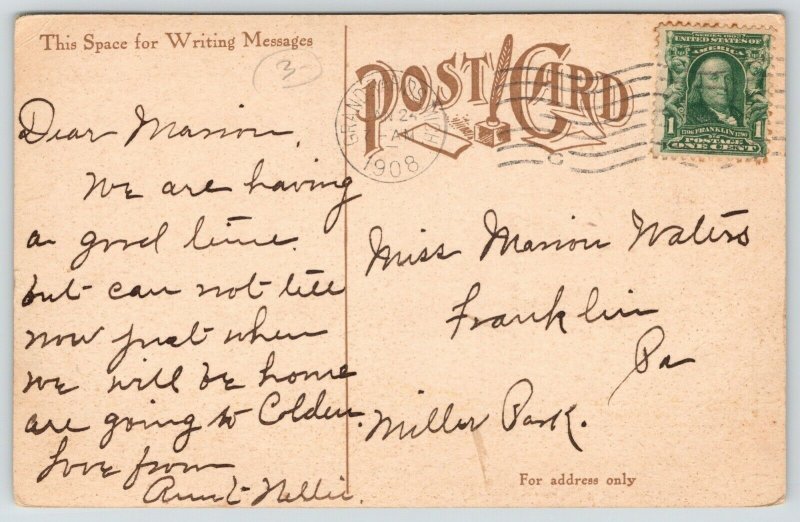 This Space for Writing Messages
3
POST CARD
GRAND
1908
SERIES 1902
UNITED STATES OF
AMERICA
1 FRANKLIN 1
POSTAGE
ONE CENT
Dear Marion,
We are having
a good time.
but can not tell
now just when
we will be home
are going to Colden.
Love from
Aunt Nellie.
Miss Marion Waters
Franklin
Pa
Miller Park.
For address only